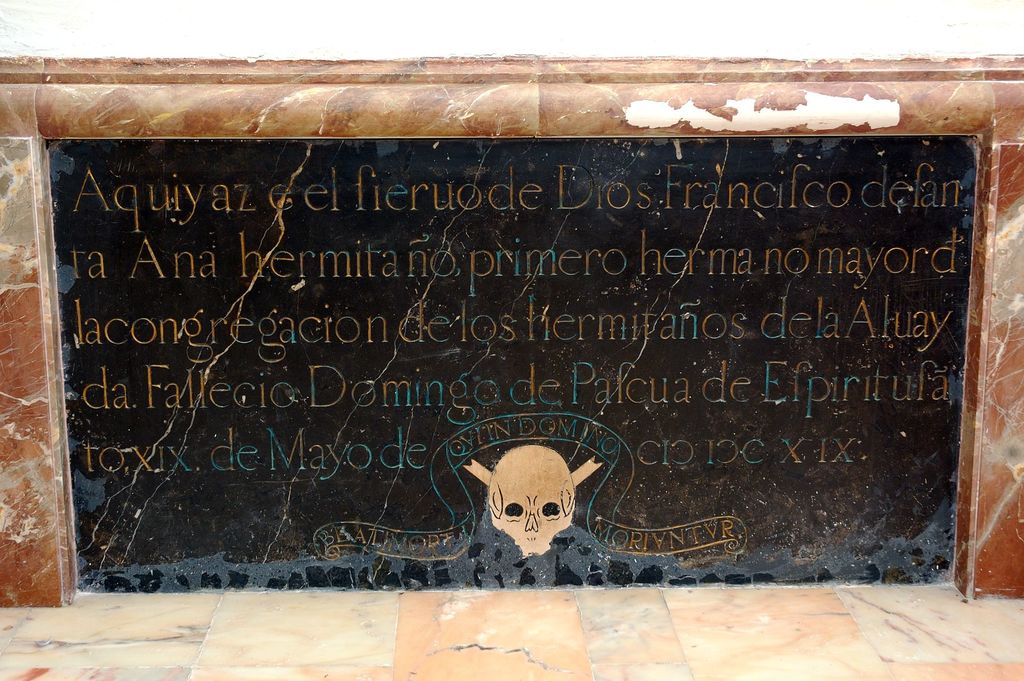 Aquiyaz e el ſieruo de Dios Franciſco deſan
ta Ana hermitaño, primero hermano mayor d
la congregacion de los hermitaños de la Aluay
da. Fallecio Domingo de Paſcua de Eſpirituſã
to, xix. de Mayo de CIↃ IↃC XIX.
QVI IN DOMINO
BEATI MORTVI MORIVNTVR